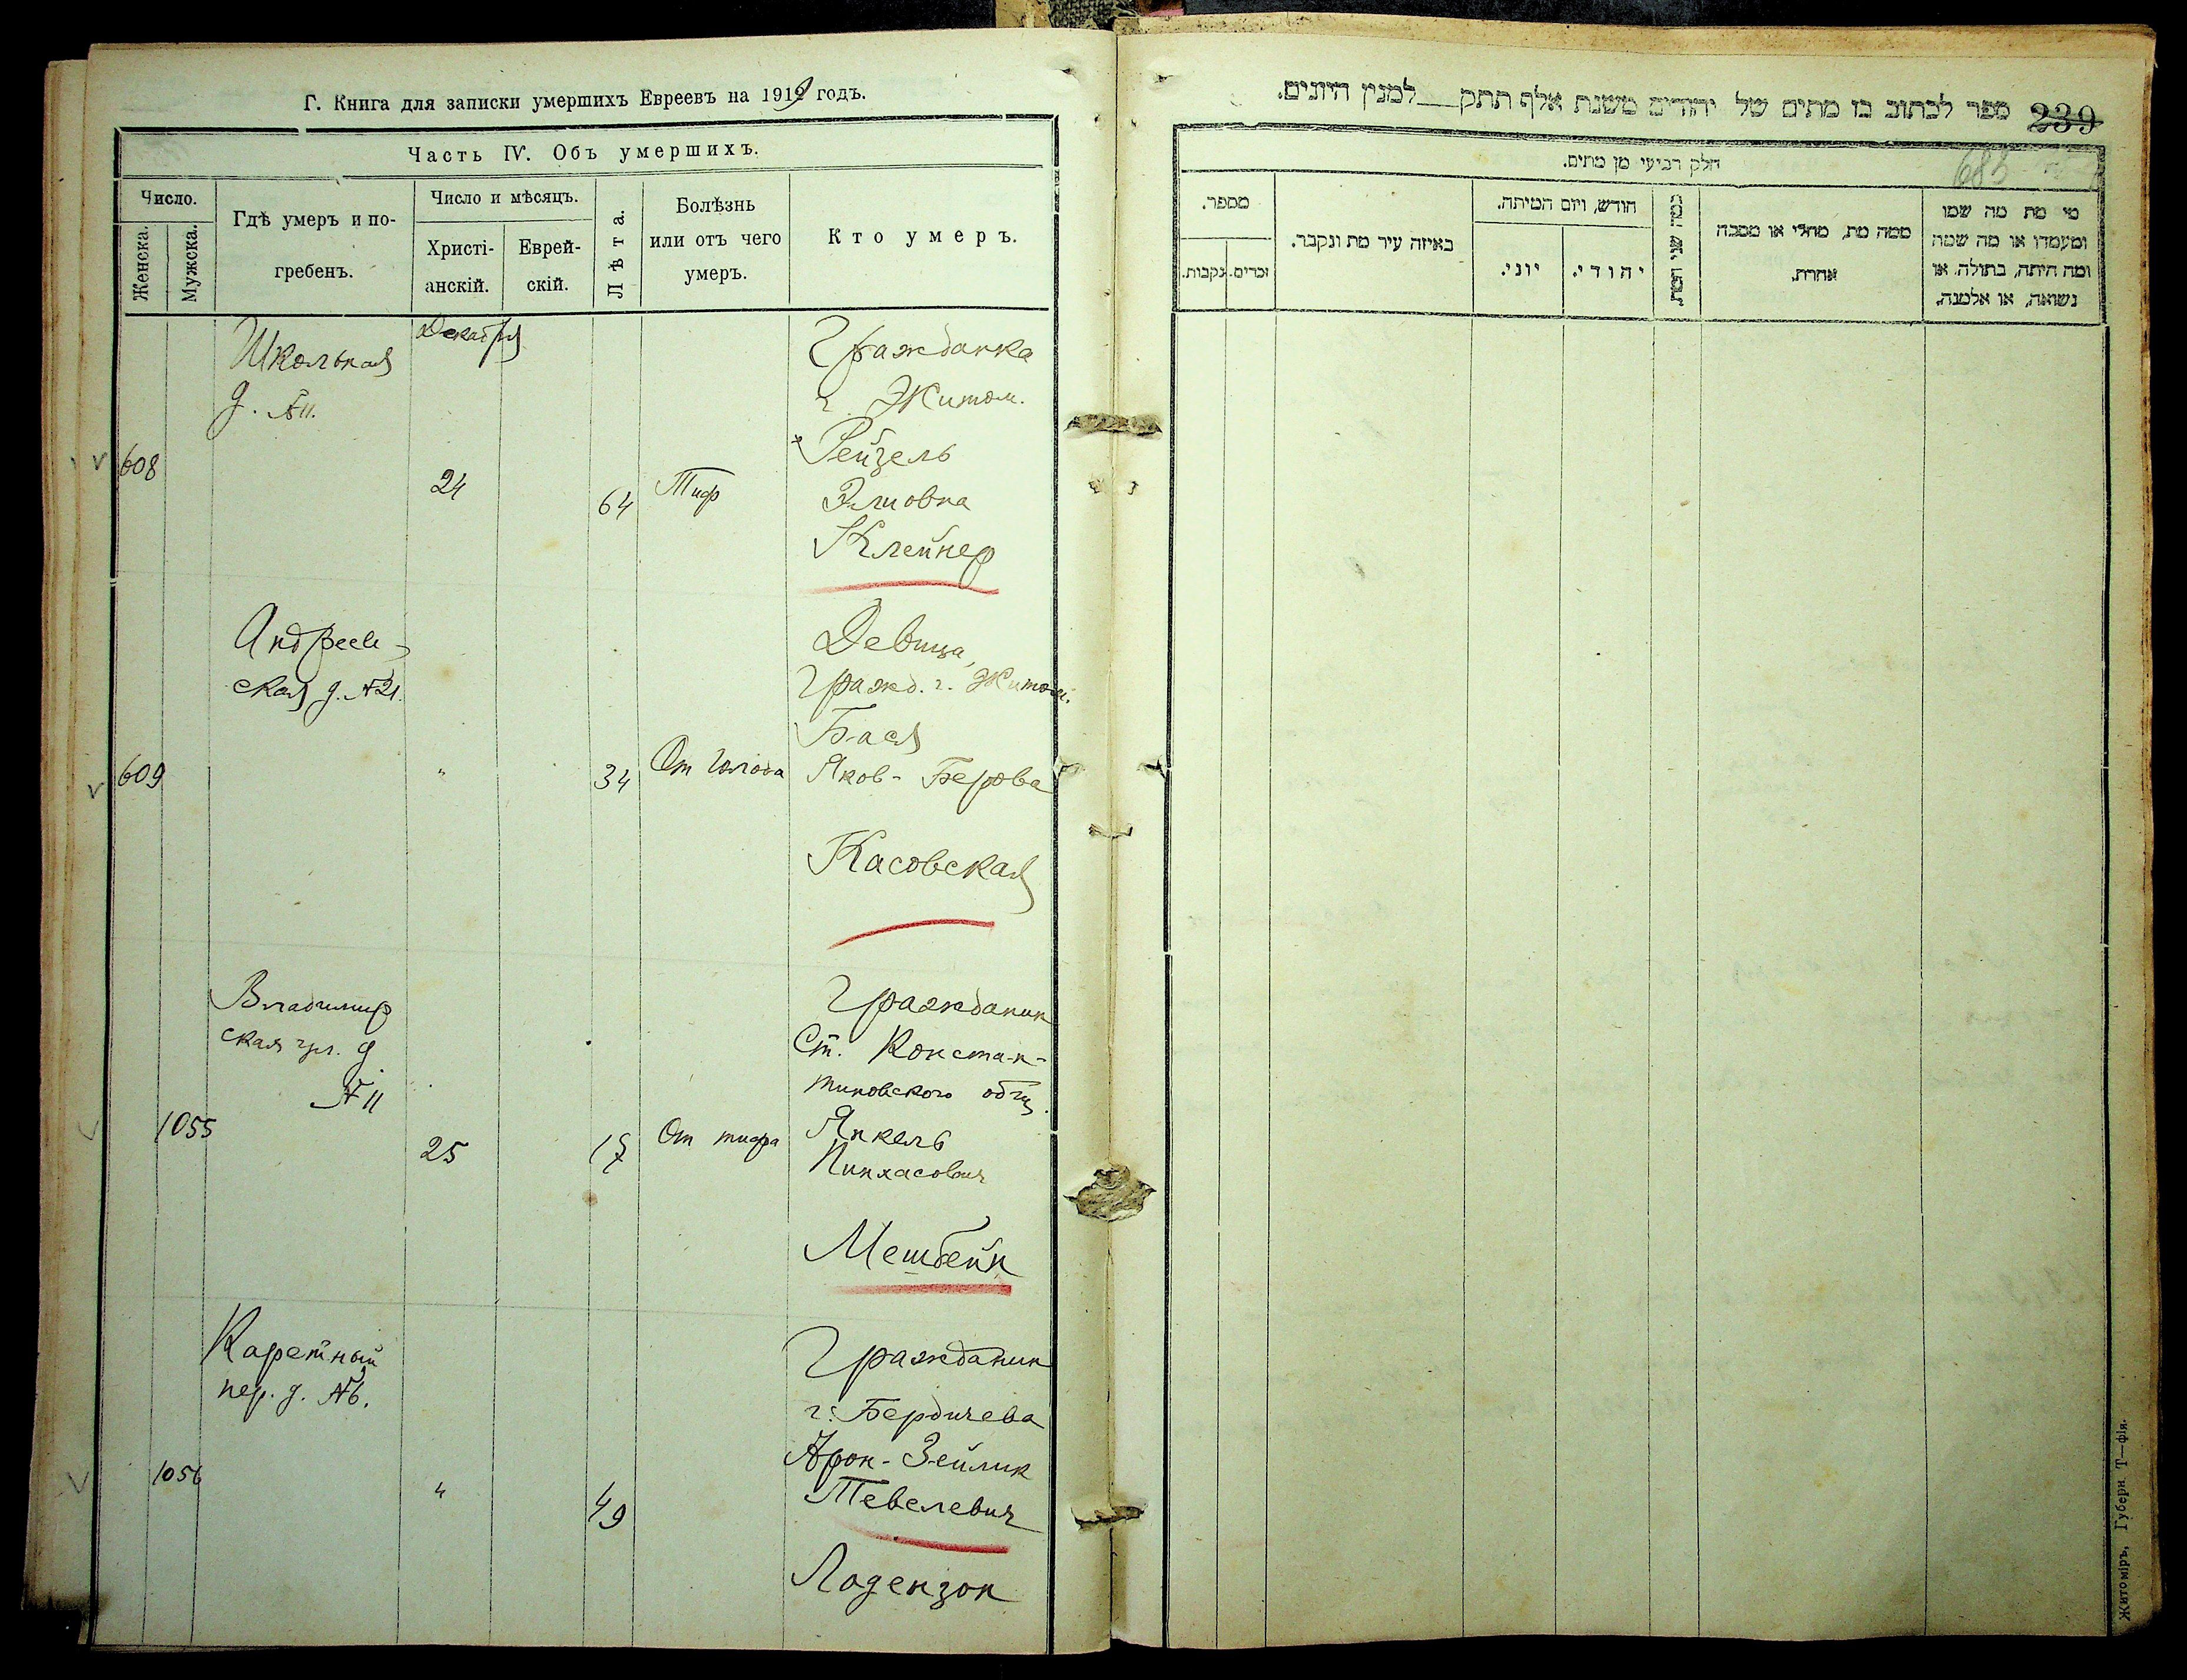 Г. Книга для записки умершихъ Евреевъ на 1919 годъ.
Часть IV. Объ умершихъ.
Число.
Женска.
Мужска.
Гдѣ умеръ и по-
гребенъ.
Число и мѣсяцъ.
Христі-
анскій.
Еврей-
скій.
Лѣта.
Болѣзнь
или отъ чего
умеръ.
Кто умеръ.
608
Школьная
д. №11.
Декабря
24
64
Тиф
Гражданка
г. Житом.
Рейзель
Элиовна
Клейнер
609
Андреев-
ская д. №21.
"
34
От голода
Девица,
Гражд. г. Житом.
Бася
Яков-Берова
Касовская
1055
Владимир
ская ул. д
№11
25
17
От тифа
Гражданин
Ст. Констан-
тиновского общ.
Янкель
Пинхасович
Мешбейн
1056
Каретный
пер. д. №6.
"
49
Гражданин
г. Бердичева
Арон-Зейлик
Тевелевич
Лодензон
ספר לכתוב בו מתים של יהודים משנת אלף תתק למנין היונים.
239
685
חלק רביעי מן מתים.
מספר.
נקבות.
זכרים.
באיזה עיר מת ונקבר.
חודש, ויום המיתה.
יוני.
יהודי.
כמה שני המת.
ממה מת, מחלי או מסבה
אחרת.
מי מת מה שמו
ומעמדו או מה שמה
ומה היתה, בתולה או
נשואה, או אלמנה.
Житоміръ, Губерн. Т—фія.